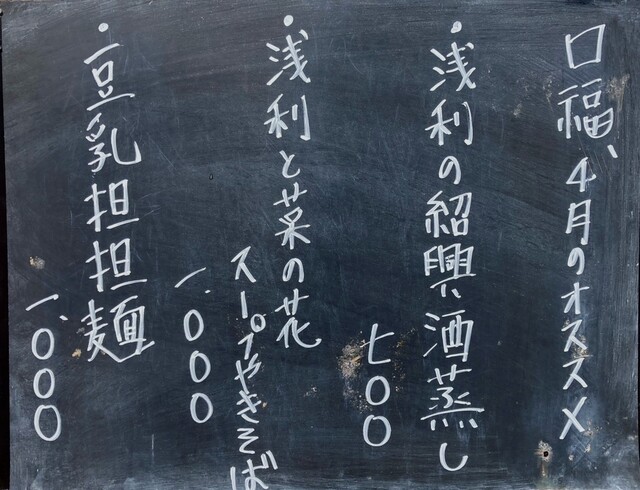 口福、4月のオススメ
・浅利の紹興酒蒸し
七〇〇
・浅利と菜の花
スープやきそば
一、〇〇〇
・豆乳担担麺
一、〇〇〇